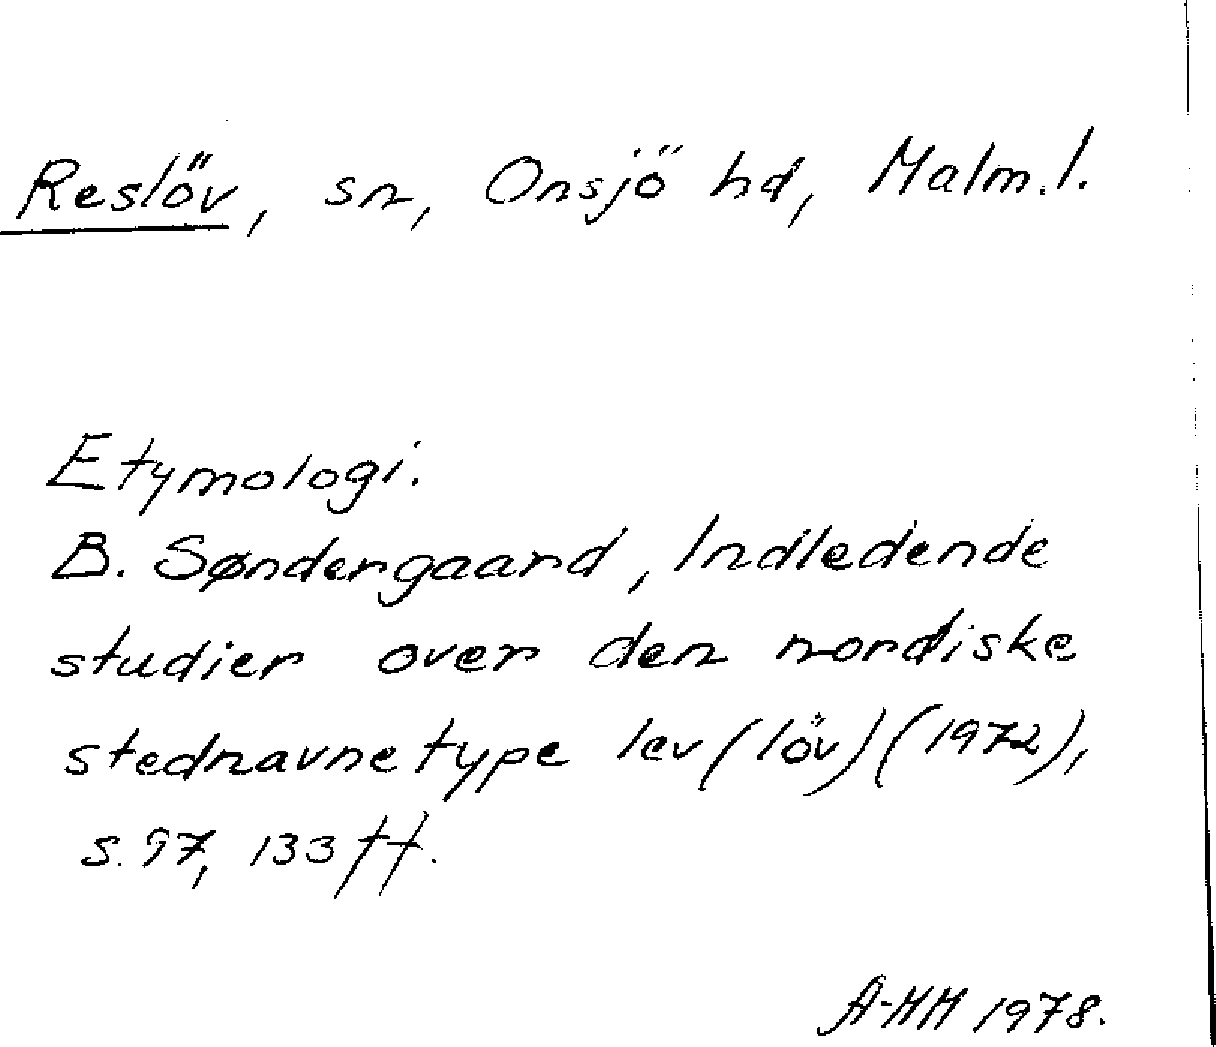 Reslöv, sn, Onsjö hd, Malm.l.
Etymologi.
B. Søndergaard, Indledende
studier over den nordiske
stednavnetype lev (löv) (1972),
s. 97, 133 ff.
A-MM 1978.